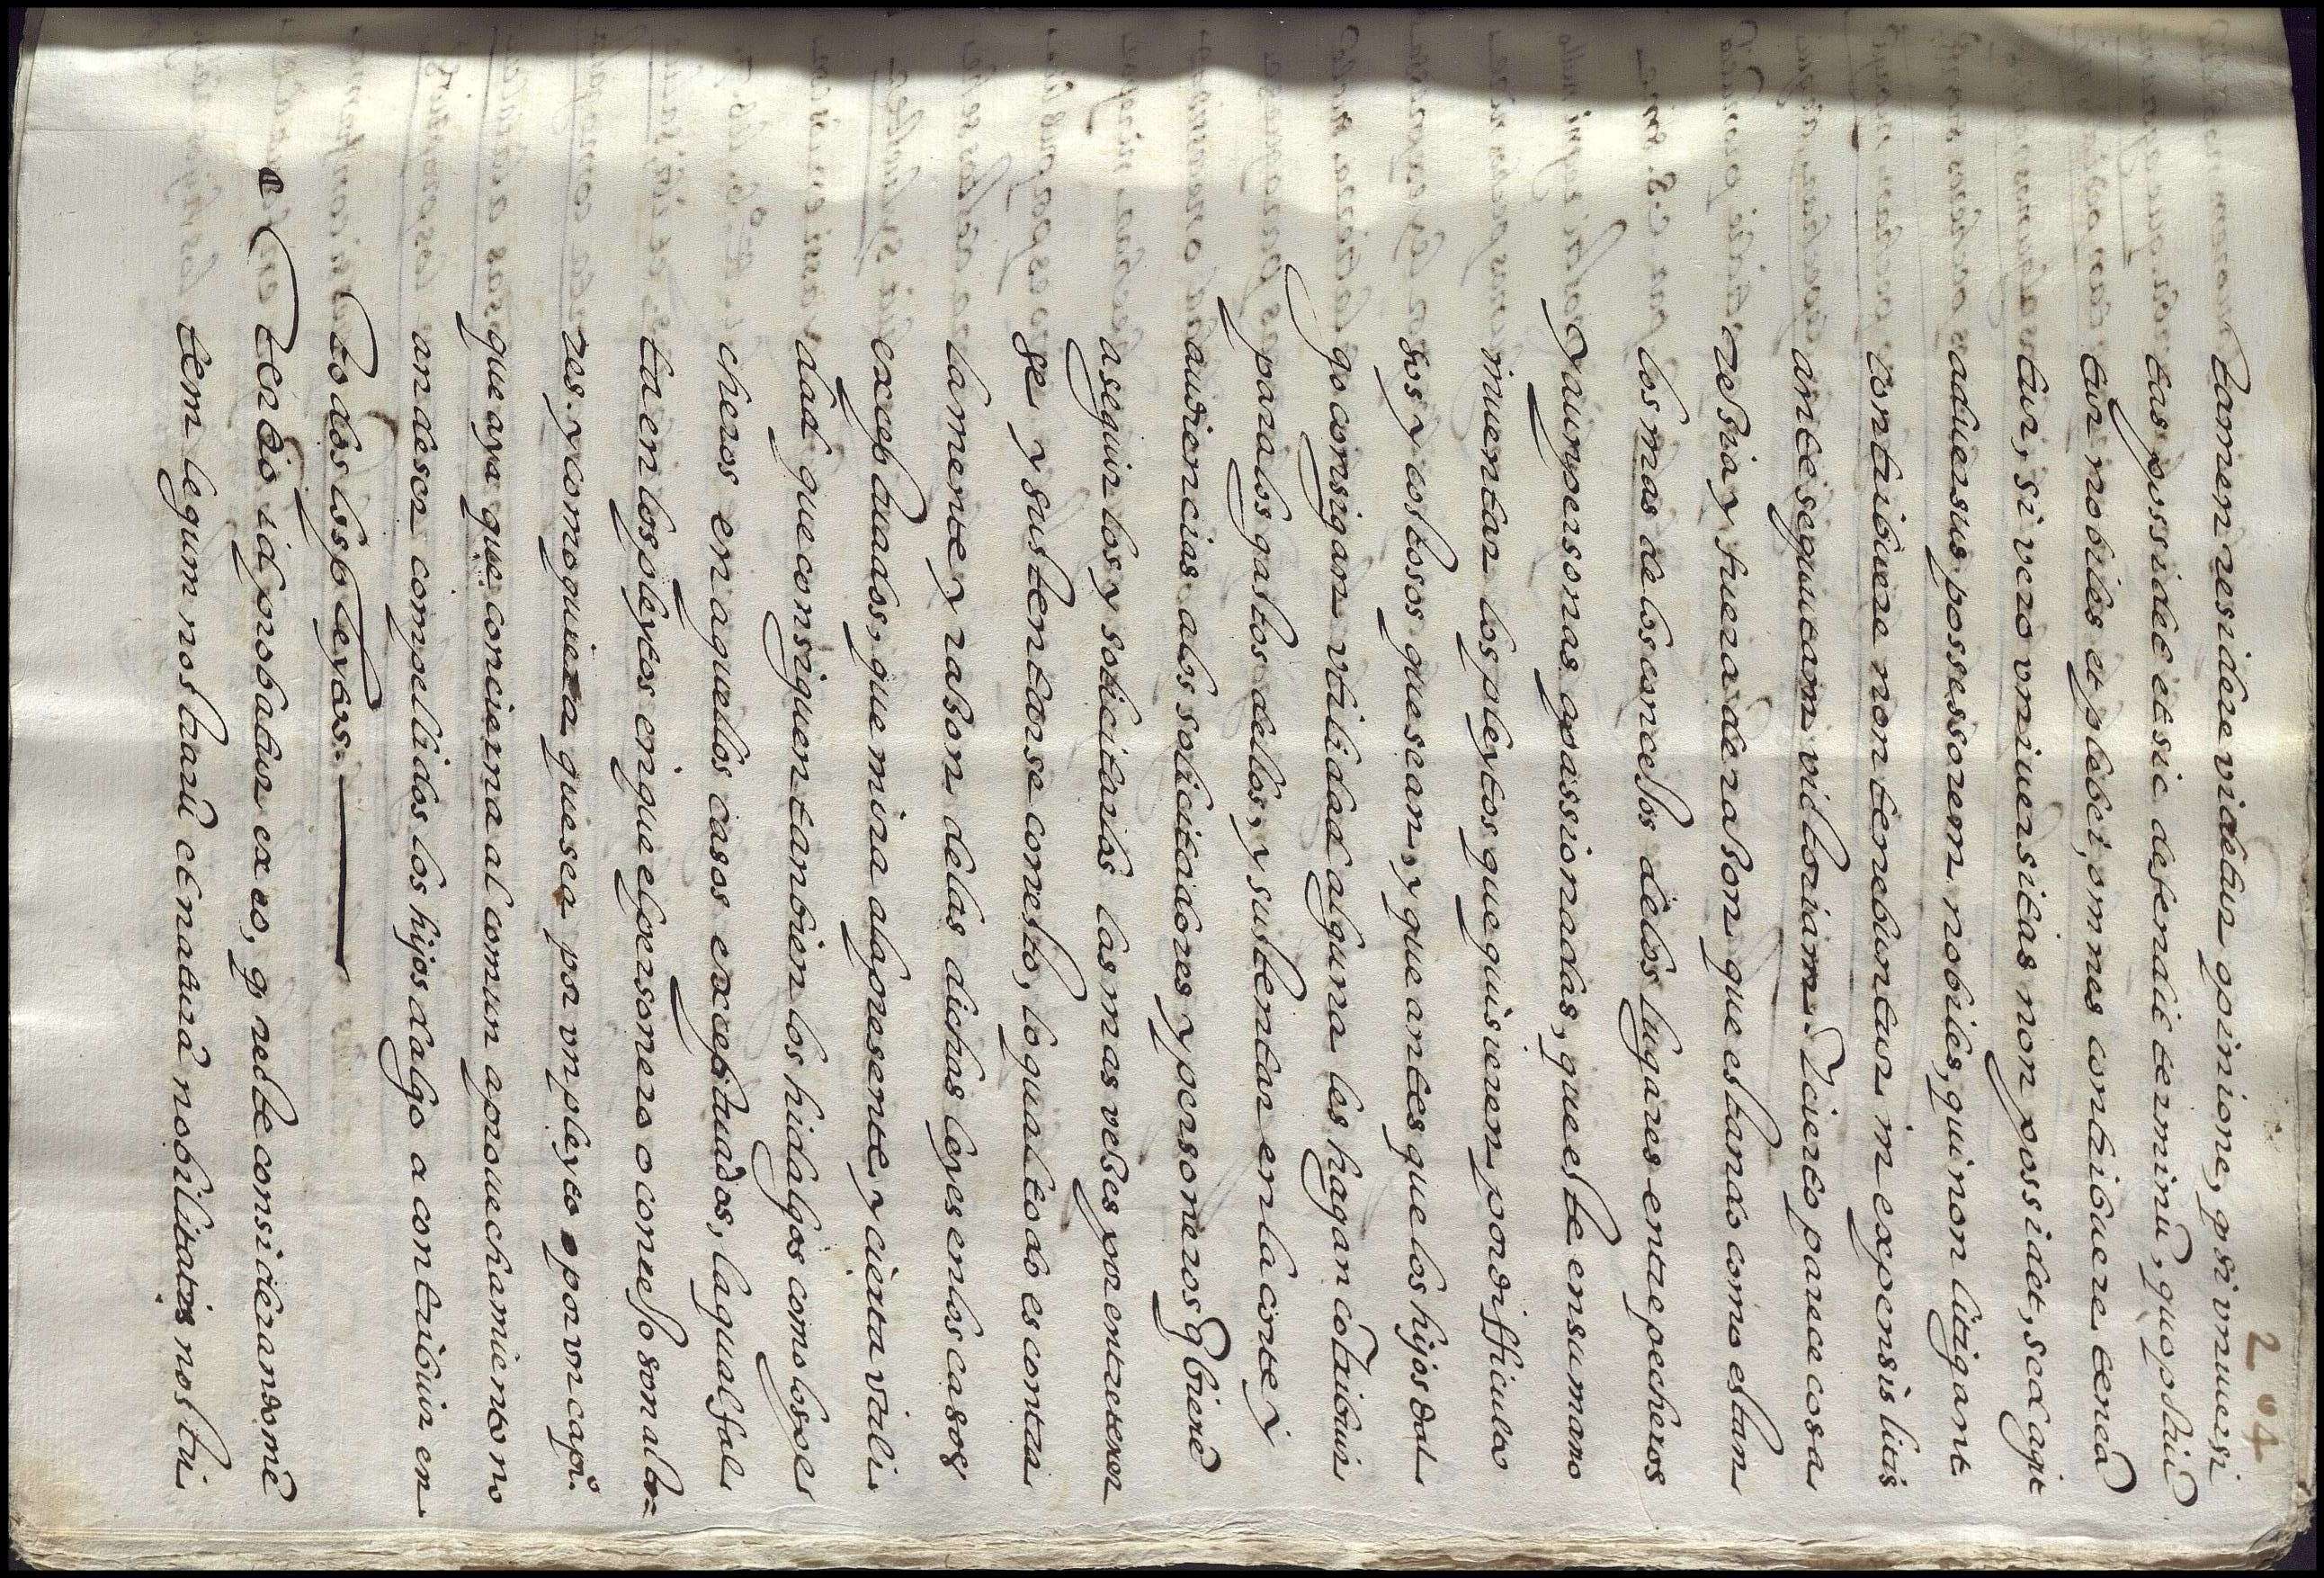 204
tamen residere videtur opinione, q̃ si vniuersi
tas possidet et sic defendit terminũ, quo potiũ
tur nobiles et plebei, omnes contribuere teneã
tur, si vero vniuersitas non possidet, sed agit
aduersus possessorem, nobiles, qui non litigant
contribuere non tenebuntur in expensis litis
ante sequutam victoriam. Y cierto parece cosa
resçia y fuera de rason que estando como estan
los mas de los conçejos de los lugares entre pecheros
y aun personas apassionadas, que este en su mano
inuentar los pleytos que quisieren por difficulto
sos y costosos que sean, y que antes que los hijos dal
go consigan vtilidad alguna les hagan cõtribuir
para los gastos dellos, y sustentar en la corte y
audiencias a los solicitadores y personeros q̃ bienẽ
a seguir los y solicitarlos las mas veses por entretener
se y sustentarse con esto, lo qual todo es contra
la mente y rason de las dichas leyes en los casos
exceptuados, que mira al presente y cierta vtili
dad que consiguen tanbien los hidalgos como los pe
cheros en aquellos casos exceptuados, la qual fal
ta en los pleytos en que el personero o conçejo son acto=
res. y como quiera que sea por vn pleyto o por vn capi.
que aya que concierna al comun aprouechamiento no
an de ser compellidos los hijos dalgo a contribuir en
todos los pleytos.
Tertio id probatur ex eo, q̃ recte considerandomẽ
tem legum nostrarũ et naturã nobilitatis nostri